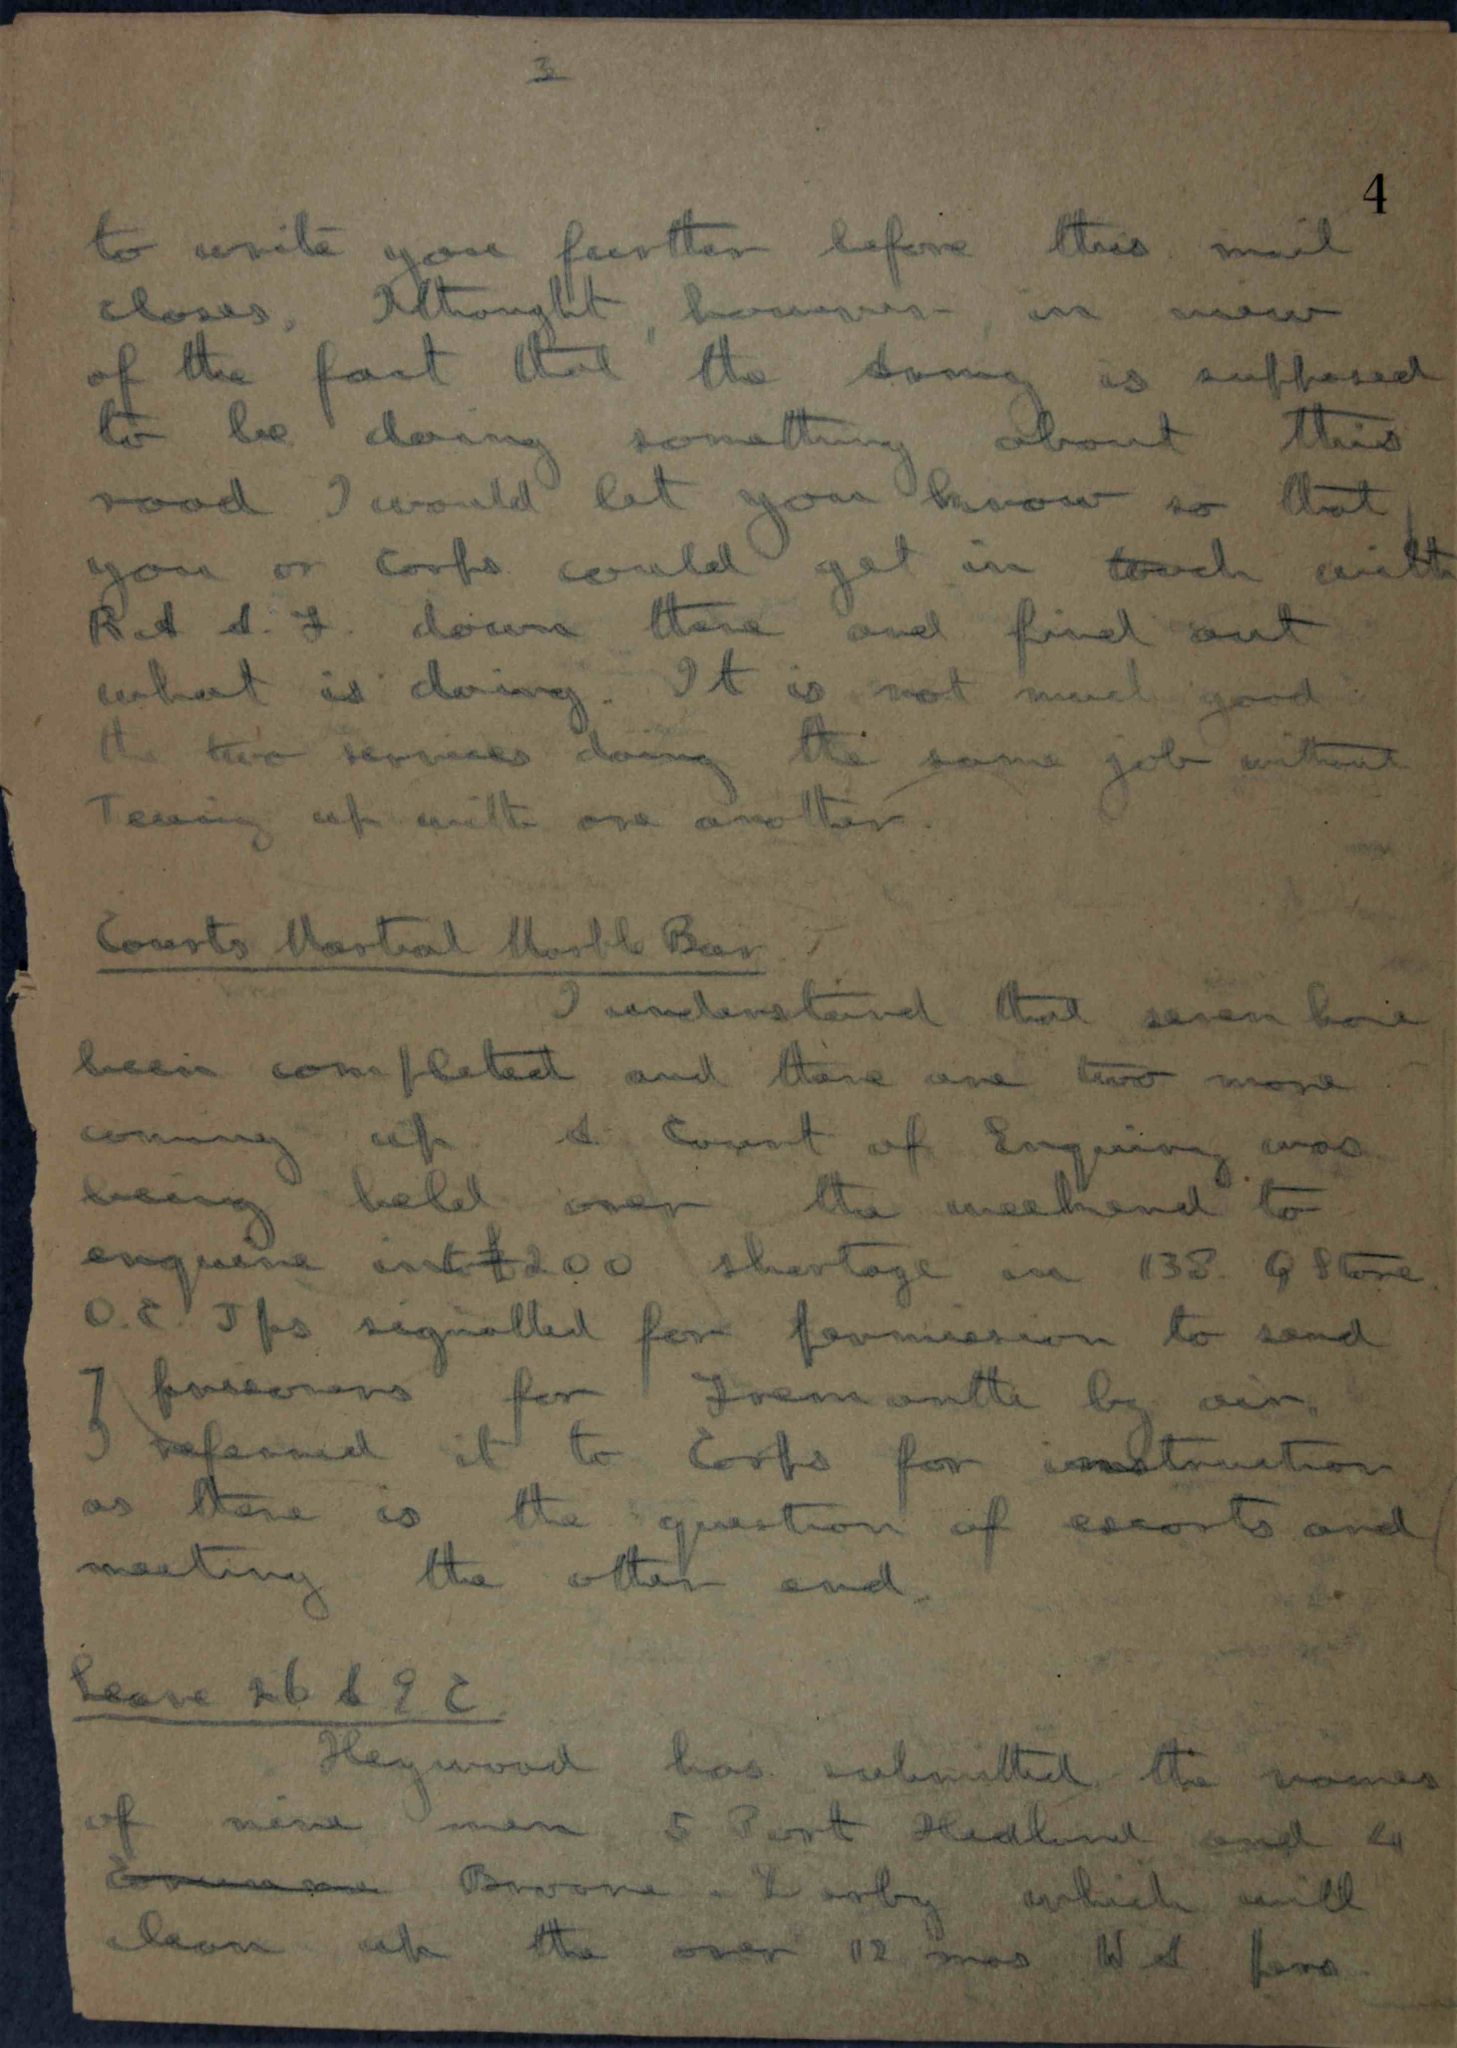 3
4
to write you further before this mail
closes. I thought, however, in view
of the fact that the Army is supposed
to be doing something about this
road I would let you know so that
you or Corps could get in touch with
R.A.A.F. down there and find out
what is doing. It is not much good
the two services doing the same job without
Teeing up with one another.
Courts Martial Marble Bar
I understand that seven have
been completed and there are two more
coming up. A Court of Enquiry was
being held over the weekend to
enquire into £200 shortage in 138 Q Store.
O.C. Tps signalled for permission to send
7 prisoners for Fremantle by air.
I referred it to Corps for instruction
as there is the question of escorts and
meeting the other end.
Leave 26 A G C
Heywood has submitted the names
of nine men 5 Port Hedland and 4
Broome - Derby which will
clean up the over 12 mos W A pers